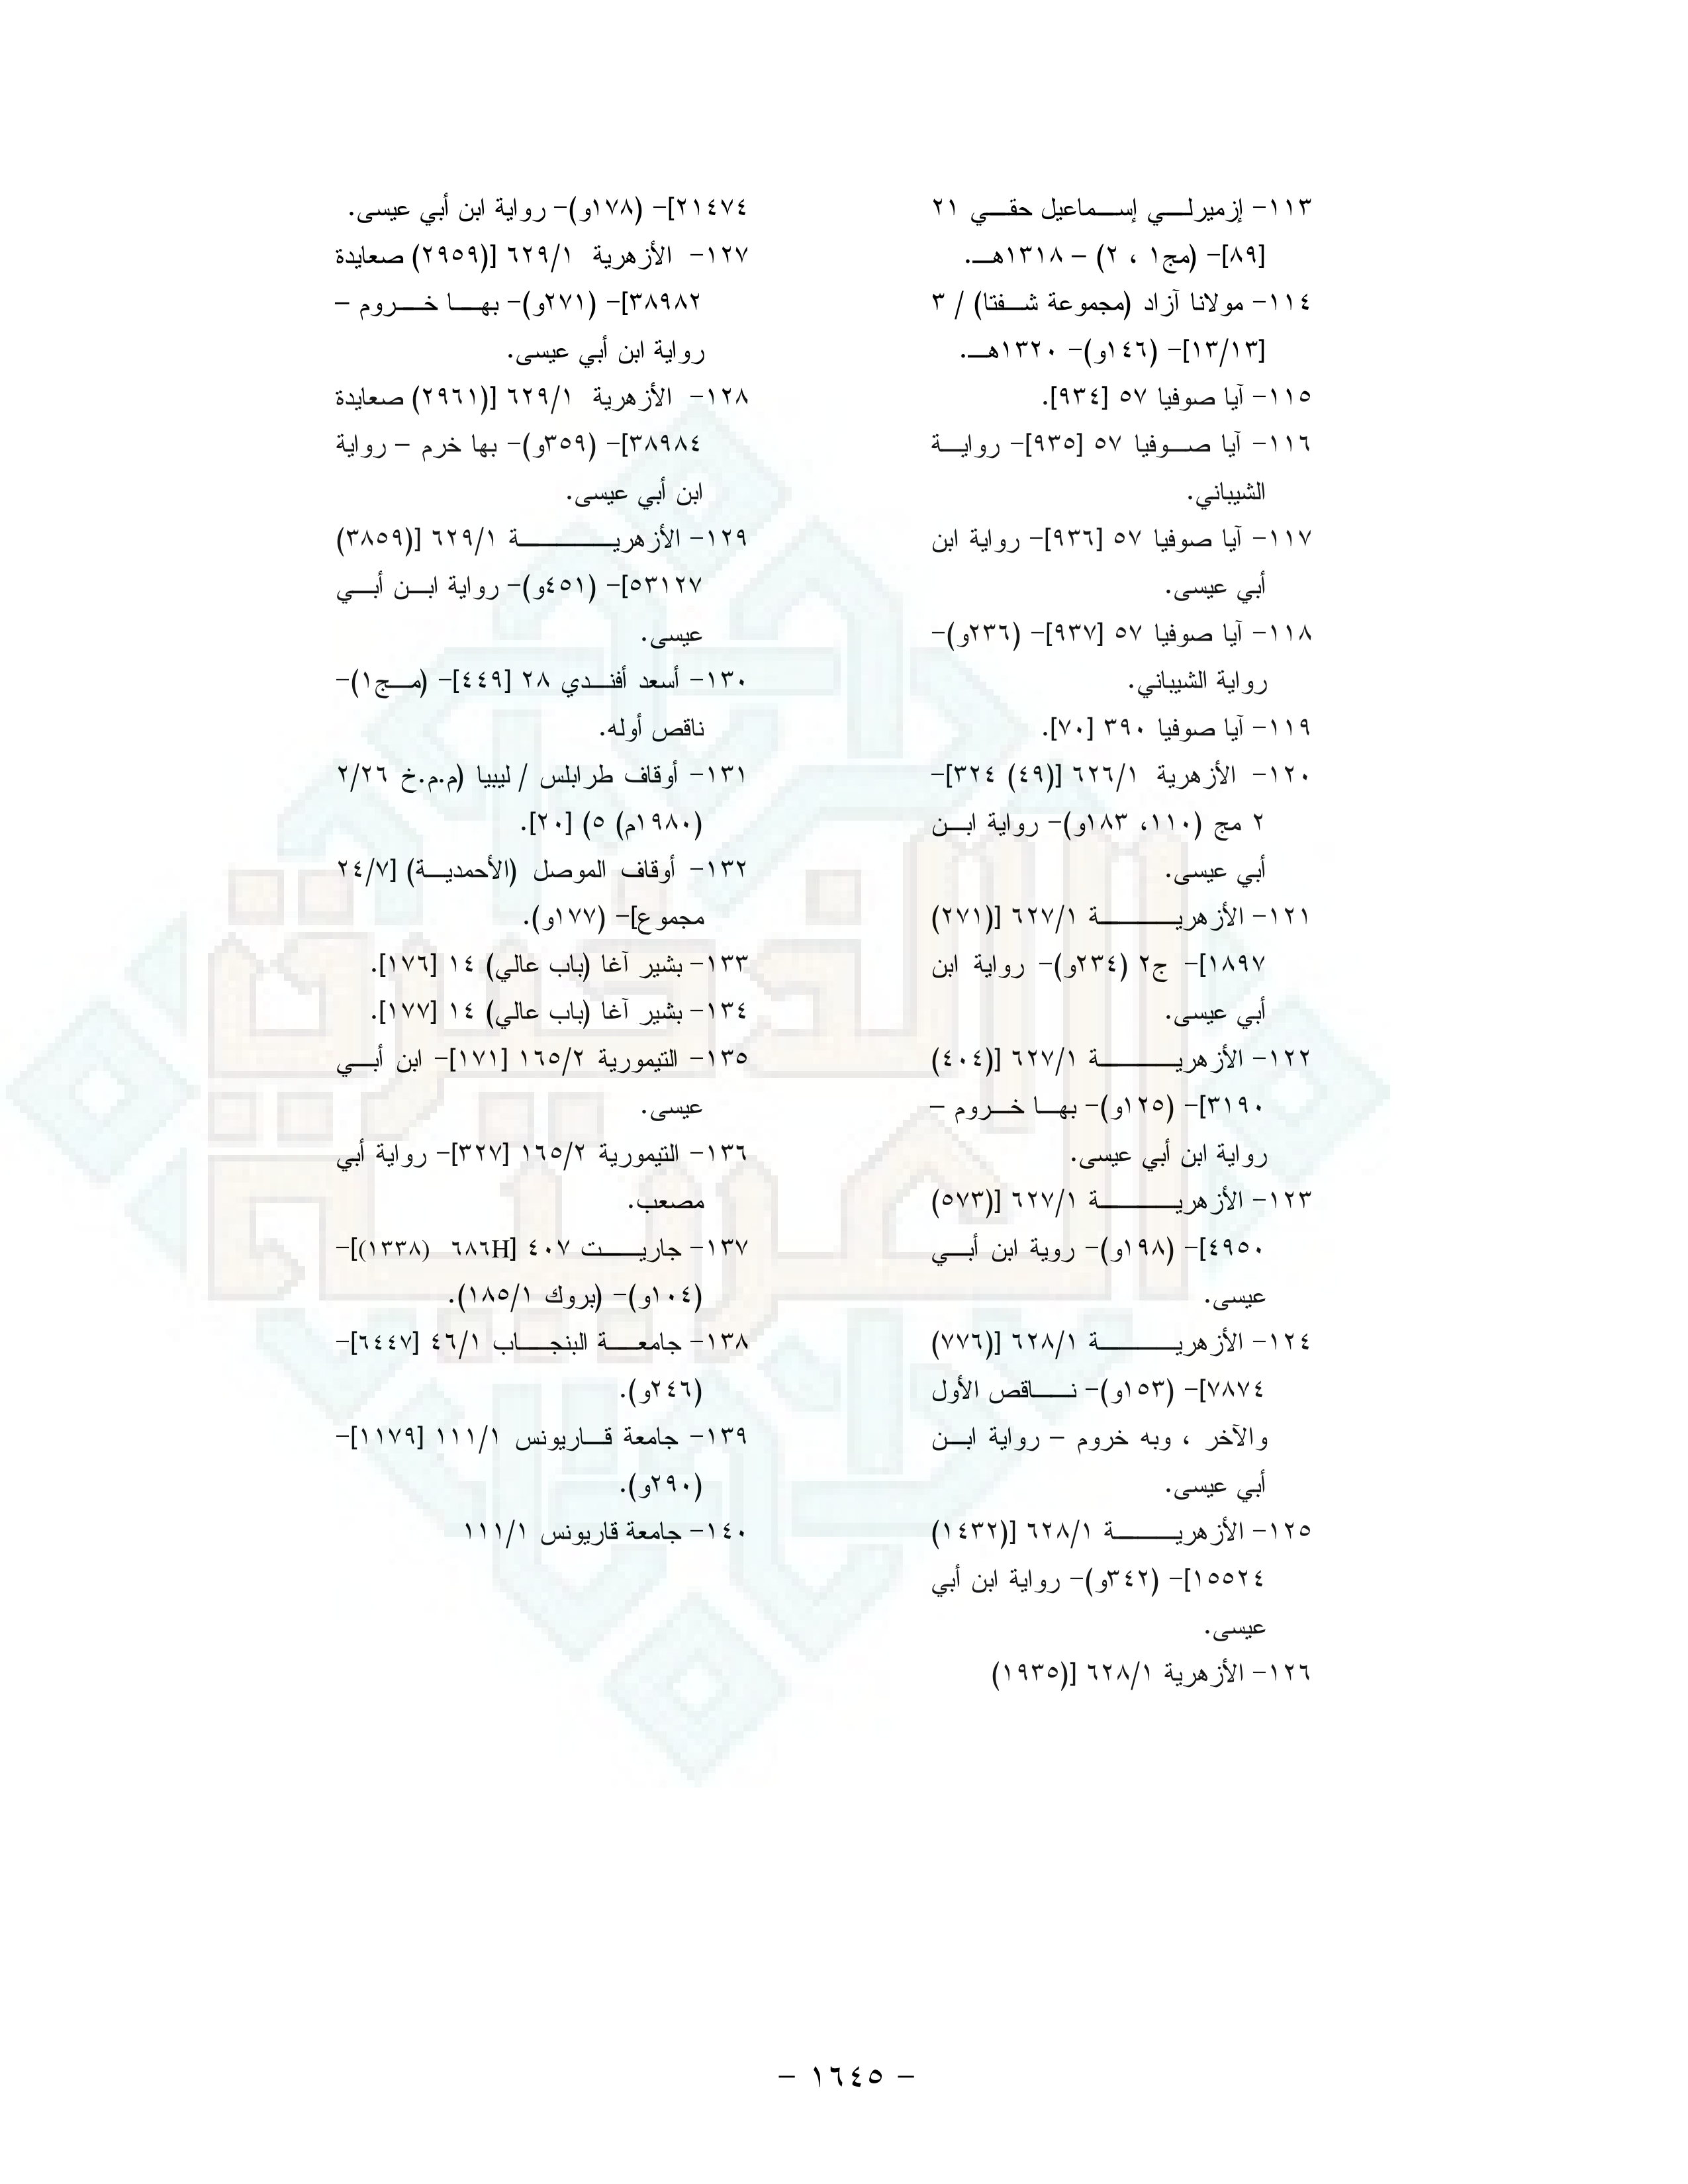 ١١٣- إزميرلي إسماعيل حقي ٢١
[٨٩]- (مج١ ، ٢) – ١٣١٨هـ.
١١٤- مولانا آزاد (مجموعة شفتا) / ٣
[١٣/١٣]- (١٤٦و)- ١٣٢٠هـ.
١١٥- آيا صوفيا ٥٧ [٩٣٤].
١١٦- آيا صوفيا ٥٧ [٩٣٥]- رواية
الشيباني.
١١٧- آيا صوفيا ٥٧ [٩٣٦]- رواية ابن
أبي عيسى.
١١٨- آيا صوفيا ٥٧ [٩٣٧]- (٢٣٦و)-
رواية الشيباني.
١١٩- آيا صوفيا ٣٩٠ [٧٠].
١٢٠- الأزهرية ٦٢٦/١ [(٤٩) ٣٢٤]-
٢ مج (١١٠، ١٨٣و)- رواية ابن
أبي عيسى.
١٢١- الأزهرية ٦٢٧/١ [(٢٧١)
١٨٩٧]- ج٢ (٢٣٤و)- رواية ابن
أبي عيسى.
١٢٢- الأزهرية ٦٢٧/١ [(٤٠٤)
٣١٩٠]- (١٢٥و)- بها خروم –
رواية ابن أبي عيسى.
١٢٣- الأزهرية ٦٢٧/١ [(٥٧٣)
٤٩٥٠]- (١٩٨و)- روية ابن أبي
عيسى.
١٢٤- الأزهرية ٦٢٨/١ [(٧٧٦)
٧٨٧٤]- (١٥٣و)- ناقص الأول
والآخر ، وبه خروم – رواية ابن
أبي عيسى.
١٢٥- الأزهرية ٦٢٨/١ [(١٤٣٢)
١٥٥٢٤]- (٣٤٢و)- رواية ابن أبي
عيسى.
١٢٦- الأزهرية ٦٢٨/١ [(١٩٣٥)
٢١٤٧٤]- (١٧٨و)- رواية ابن أبي عيسى.
١٢٧- الأزهرية ٦٢٩/١ [(٢٩٥٩) صعايدة
٣٨٩٨٢]- (٢٧١و)- بها خروم –
رواية ابن أبي عيسى.
١٢٨- الأزهرية ٦٢٩/١ [(٢٩٦١) صعايدة
٣٨٩٨٤]- (٣٥٩و)- بها خرم – رواية
ابن أبي عيسى.
١٢٩- الأزهرية ٦٢٩/١ [(٣٨٥٩)
٥٣١٢٧]- (٤٥١و)- رواية ابن أبي
عيسى.
١٣٠- أسعد أفندي ٢٨ [٤٤٩]- (مج١)-
ناقص أوله.
١٣١- أوقاف طرابلس / ليبيا (م.م.خ ٢/٢٦
(١٩٨٠م) ٥) [٢٠].
١٣٢- أوقاف الموصل (الأحمدية) [٢٤/٧
مجموع]- (١٧٧و).
١٣٣- بشير آغا (باب عالي) ١٤ [١٧٦].
١٣٤- بشير آغا (باب عالي) ١٤ [١٧٧].
١٣٥- التيمورية ١٦٥/٢ [١٧١]- ابن أبي
عيسى.
١٣٦- التيمورية ١٦٥/٢ [٣٢٧]- رواية أبي
مصعب.
١٣٧- جاريت ٤٠٧ [٦٨٦H (١٣٣٨)]-
(١٠٤و)- (بروك ١٨٥/١).
١٣٨- جامعة البنجاب ٤٦/١ [٦٤٤٧]-
(٢٤٦و).
١٣٩- جامعة قاريونس ١١١/١ [١١٧٩]-
(٢٩٠و).
١٤٠- جامعة قاريونس ١١١/١
- ١٦٤٥ -
الذخيرة
العربية